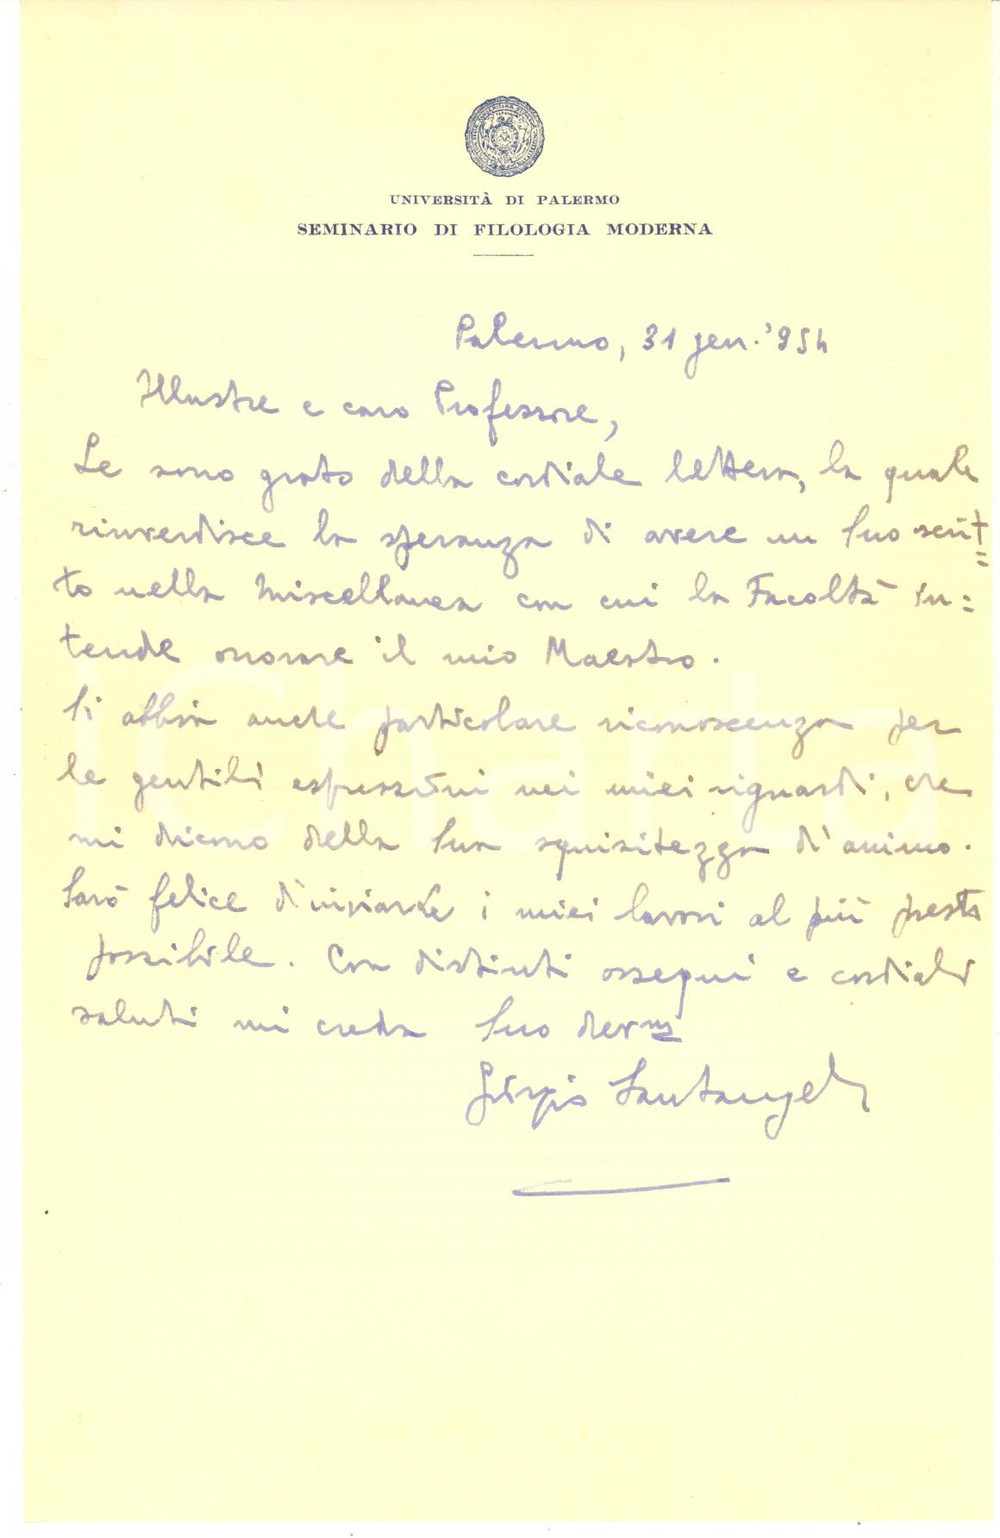 UNIVERSITÀ DI PALERMO
SEMINARIO DI FILOLOGIA MODERNA
Palermo, 31 gen. '954
Illustre e caro Professore,
Le sono grato della cordiale lettera, la quale
rinverdisce la speranza di avere un Suo scrit=
to nella Miscellanea con cui la Facoltà in=
tende onorare il mio Maestro.
Si abbia anche particolare riconoscenza per
le gentili espressioni nei miei riguardi, che
mi dicono della Sua squisitezza d'animo.
Sarò felice d'inviarLe i miei lavori al più presto
possibile. Con distinti ossequi e cordiali
saluti mi creda Suo dev.mo
Giorgio Santangelo
iCharta